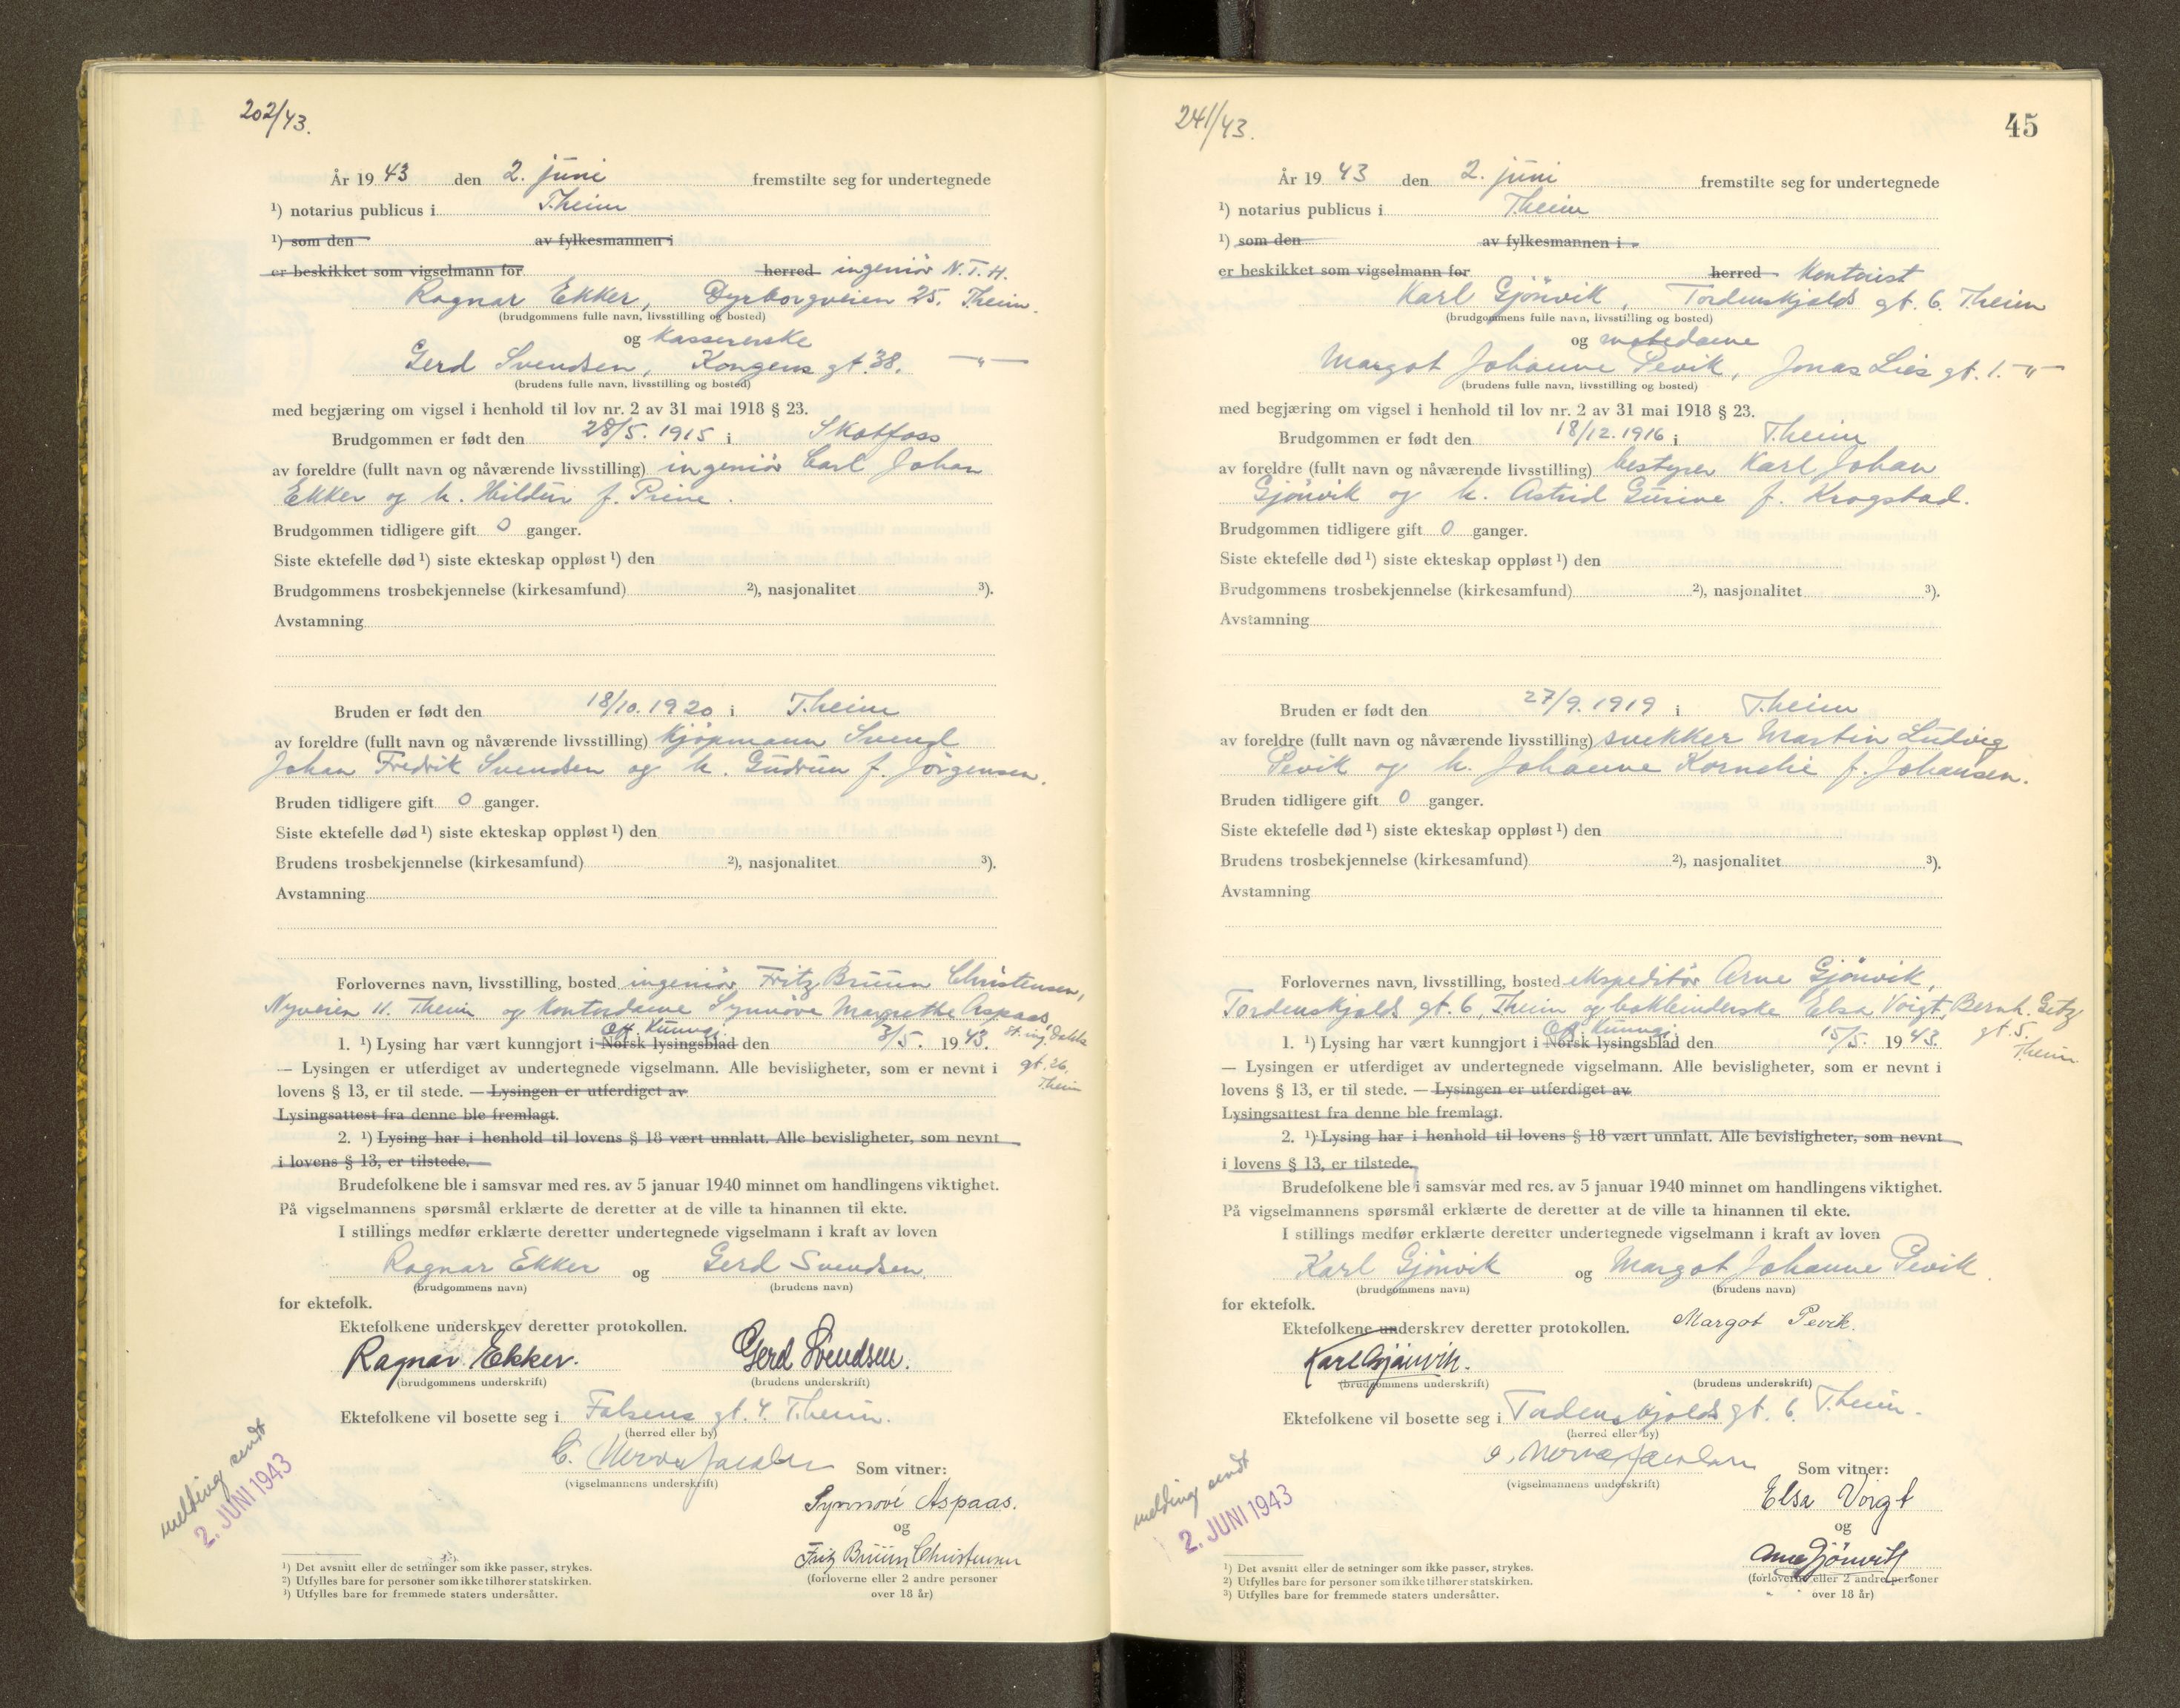 202/43.
År 19 43 den 2. juni fremstilte seg for undertegnede
¹) notarius publicus i T.heim
¹) som den av fylkesmannen i
er beskikket som vigselmann for herred ingeniør N.T.H.
Ragnar Ekker, Dyrborgveien 25. Theim.
(brudgommens fulle navn, livsstilling og bosted)
og kassererske
Gerd Svendsen, Kongens gt. 38. —"—
(brudens fulle navn, livsstilling og bosted)
med begjæring om vigsel i henhold til lov nr. 2 av 31 mai 1918 § 23.
Brudgommen er født den 28/5. 1915 i Skotfoss
av foreldre (fullt navn og nåværende livsstilling) ingeniør Carl Johan
Ekker og h. Hildur f. .
Brudgommen tidligere gift 0 ganger.
Siste ektefelle død ¹) siste ekteskap oppløst ¹) den
Brudgommens trosbekjennelse (kirkesamfund) ²), nasjonalitet ³).
Avstamning
Bruden er født den 18/10. 1920 i T.heim
av foreldre (fullt navn og nåværende livsstilling) kjøpmann Svend
Johan Fredrik Svendsen og h. Gudrun f. Jörgensen.
Bruden tidligere gift 0 ganger.
Siste ektefelle død ¹) siste ekteskap oppløst ¹) den
Brudens trosbekjennelse (kirkesamfund) ²), nasjonalitet ³).
Avstamning
Forlovernes navn, livsstilling, bosted ingeniør Fritz Brüün Christensen,
Nyveien 11. Theim og kontordame Synnöve Margrethe Aspaas,
Off. Kunngj. St. ing. Dahls
1. ¹) Lysing har vært kunngjort i Norsk lysingsblad den 3/5. 19 43.
gt. 26.
— Lysingen er utferdiget av undertegnede vigselmann. Alle bevisligheter, som er nevnt i
Theim
lovens § 13, er til stede. — Lysingen er utferdiget av
Lysingsattest fra denne ble fremlagt.
2. ¹) Lysing har i henhold til lovens § 18 vært unnlatt. Alle bevisligheter, som nevnt
i lovens § 13, er tilstede.
Brudefolkene ble i samsvar med res. av 5 januar 1940 minnet om handlingens viktighet.
På vigselmannens spørsmål erklærte de deretter at de ville ta hinannen til ekte.
I stillings medfør erklærte deretter undertegnede vigselmann i kraft av loven
Ragnar Ekker og Gerd Svendsen.
(brudgommens navn) (brudens navn)
for ektefolk.
Ektefolkene underskrev deretter protokollen.
Ragnar Ekker. Gerd Svendsen.
(brudgommens underskrift) (brudens underskrift)
Ektefolkene vil bosette seg i Falsens gt. 4. T.heim.
(herred eller by)
Som vitner:
(vigselmannens underskrift)
Synnöve Aspaas.
og
Fritz Brüün Christensen
(forloverne eller 2 andre personer
over 18 år)
melding sendt
2. JUNI 1943
¹) Det avsnitt eller de setninger som ikke passer, strykes.
²) Utfylles bare for personer som ikke tilhører statskirken.
³) Utfylles bare for fremmede staters undersåtter.
241/43.
45
År 19 43 den 2. juni fremstilte seg for undertegnede
¹) notarius publicus i T.heim
¹) som den av fylkesmannen i
er beskikket som vigselmann for herred Kontorist
Karl Gjönvik, Tordenskjolds gt. 6. Theim
(brudgommens fulle navn, livsstilling og bosted)
og motedame
Margot Johanne Pevik, Jonas Lies gt. 1. —"—
(brudens fulle navn, livsstilling og bosted)
med begjæring om vigsel i henhold til lov nr. 2 av 31 mai 1918 § 23.
Brudgommen er født den 18/12. 1916 i T.heim
av foreldre (fullt navn og nåværende livsstilling) bestyrer Karl Johan
Gjönvik og h. Astrid Gurine f. Krogstad.
Brudgommen tidligere gift 0 ganger.
Siste ektefelle død ¹) siste ekteskap oppløst ¹) den
Brudgommens trosbekjennelse (kirkesamfund) ²), nasjonalitet ³).
Avstamning
Bruden er født den 27/9. 1919 i T.heim
av foreldre (fullt navn og nåværende livsstilling) snekker Martin Ludvig
Pevik og h. Johanne Kornelie f. Johansen.
Bruden tidligere gift 0 ganger.
Siste ektefelle død ¹) siste ekteskap oppløst ¹) den
Brudens trosbekjennelse (kirkesamfund) ²), nasjonalitet ³).
Avstamning
Forlovernes navn, livsstilling, bosted ekspeditör Arne Gjönvik,
Tordenskjolds gt. 6, Theim og bokbinderske Elsa Voigt, Bernh. Getz
Off. Kunngj. gt. 5.
1. ¹) Lysing har vært kunngjort i Norsk lysingsblad den 15/5. 19 43.
Theim
— Lysingen er utferdiget av undertegnede vigselmann. Alle bevisligheter, som er nevnt i
lovens § 13, er til stede. — Lysingen er utferdiget av
Lysingsattest fra denne ble fremlagt.
2. ¹) Lysing har i henhold til lovens § 18 vært unnlatt. Alle bevisligheter, som nevnt
i lovens § 13, er tilstede.
Brudefolkene ble i samsvar med res. av 5 januar 1940 minnet om handlingens viktighet.
På vigselmannens spørsmål erklærte de deretter at de ville ta hinannen til ekte.
I stillings medfør erklærte deretter undertegnede vigselmann i kraft av loven
Karl Gjönvik og Margot Johanne Pevik.
(brudgommens navn) (brudens navn)
for ektefolk.
Ektefolkene underskrev deretter protokollen. Margot Pevik.
Karl Gjönvik.
(brudgommens underskrift) (brudens underskrift)
Ektefolkene vil bosette seg i Tordenskjolds gt. 6. T.heim.
(herred eller by)
Som vitner:
(vigselmannens underskrift)
Elsa Voigt
og
Arne Gjönvik
(forloverne eller 2 andre personer
over 18 år)
melding sendt
2. JUNI 1943
¹) Det avsnitt eller de setninger som ikke passer, strykes.
²) Utfylles bare for personer som ikke tilhører statskirken.
³) Utfylles bare for fremmede staters undersåtter.